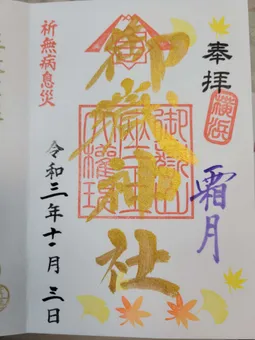 奉拝
横浜
霜月
御嶽神社
御嶽山
蔵王
大権現
祈無病息災
令和三年十一月三日